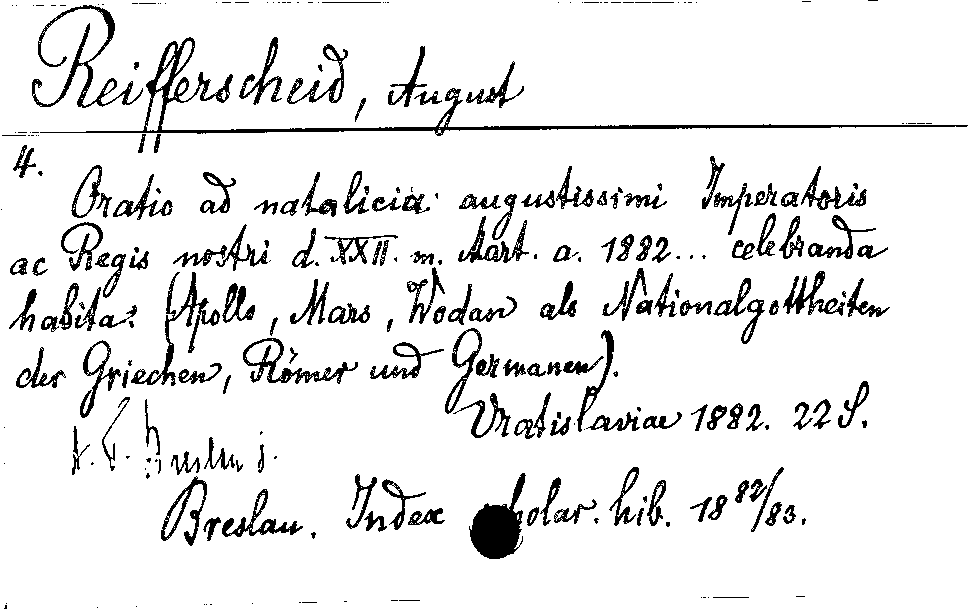 Reifferscheid, August
4.
Oratio ad natalicia augustissimi Imperatoris
ac Regis nostri d. XXII. m. Mart. a. 1882... celebranda
habita: (Apollo, Mars, Wodan als Nationalgottheiten
der Griechen, Römer und Germanen).
Vratislaviae 1882. 22 S.
Breslau
Breslau. Index scholar. hib. 1882/83.